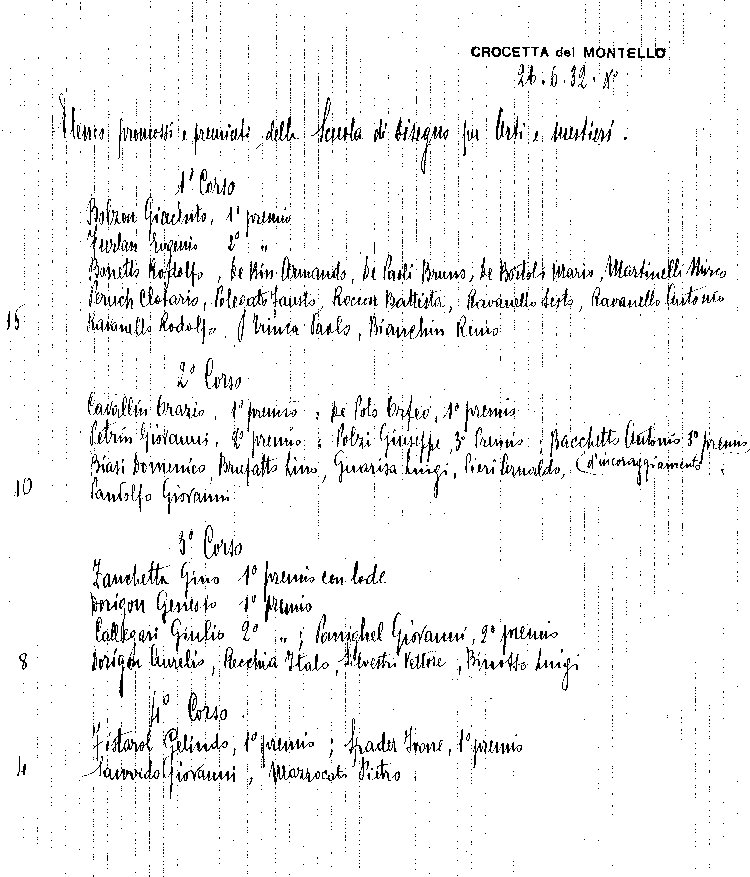 CROCETTA del MONTELLO
26.6.32. N°
Elenco promossi e premiati della Scuola di Disegno per Arti e mestieri.
1° Corso
Bolzon Giacinto, 1° premio
Furlan Eugenio 2° "
Bonetto Rodolfo, De Bin Armando, De Paoli Bruno, De Bortoli Mario, Martinelli Mirco
Peruch Clotario, Polegato Fausto, Roccon Battista, Ravanello Sesto, Ravanello Antonio
15 Ravanello Rodolfo, Trinca Paolo, Bianchin Remo
2° Corso
Cavallin Orazio, 1° premio ; De Poto Orfeo, 1° premio
Petrin Giovanni, 2° premio ; Polzi Giuseppe, 3° Premio ; Bacchetto Antonio 3° premio
Biasi Domenico, Brufatto Lino, Guarisa Luigi, Pieri Pernaldo, (d'incoraggiamento
10 Pandolfo Giovanni
3° Corso
Zanchetta Gino 1° premio con lode
Dorigon Genesio 1° premio
Callegari Giulio 2° " ; Panighel Giovanni, 2° premio
8 Dorigon Aurelio, Recchia Italo, Silvestri Vettore, Binotto Luigi
4° Corso
Fistarol Gelindo, 1° premio ; Spader Ivone, 1° premio
4 Giovanni, Mazzocato Pietro